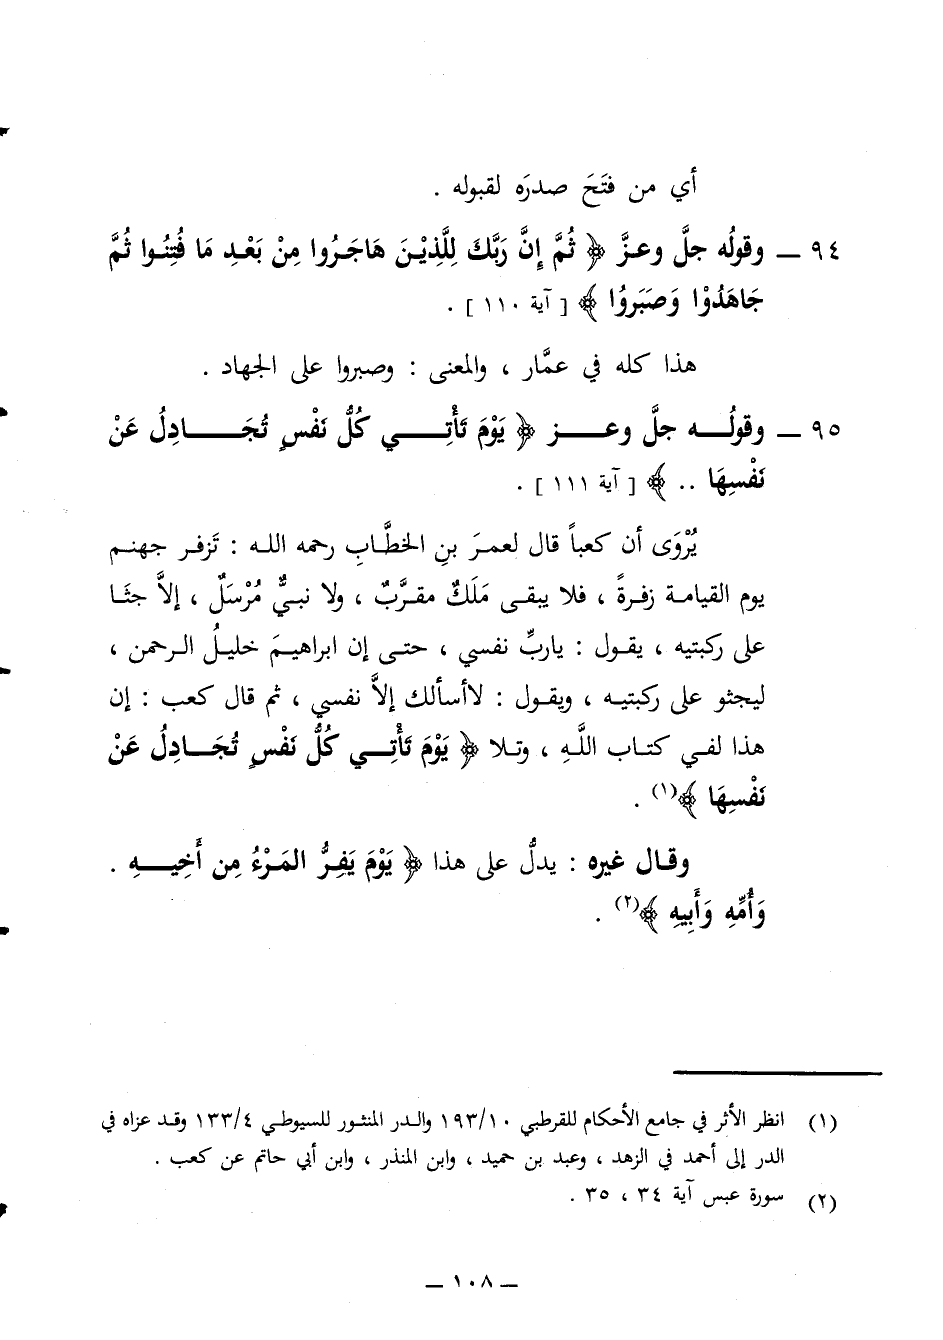 أي من فتَحَ صدرَه لقبوله .
٩٤ ــ وقولُه جلَّ وعزَّ ﴿ ثُمَّ إِنَّ رَبَّكَ لِلَّذِيْنَ هَاجَرُوا مِنْ بَعْدِ مَا فُتِنُوا ثُمَّ
جَاهَدُوْا وَصَبَرُوُا ﴾ [ آية ١١٠ ] .
هذا كله في عمَّار ، والمعنى : وصبروا على الجهاد .
٩٥ ــ وقولُه جلَّ وعز ﴿ يَوْمَ تَأْتِي كُلُّ نَفْسٍ تُجَادِلُ عَنْ
نَفْسِهَا .. ﴾ [ آية ١١١ ] .
يُرْوَى أن كعباً قال لعمرَ بنِ الخطَّابِ رحمه الله : تَزفر جهنم
يوم القيامة زفرةً ، فلا يبقى مَلَكٌ مقرَّبٌ ، ولا نبيٌّ مُرْسَلٌ ، إلاَّ جثَا
على ركبتيه ، يقول : ياربِّ نفسي ، حتى إن ابراهيمَ خليلُ الرحمن ،
ليجثو على ركبتيه ، ويقول : لاأسألك إلاَّ نفسي ، ثم قال كعب : إن
هذا لفي كتاب اللَّهِ ، وتلا ﴿ يَوْمَ تَأْتِي كُلُّ نَفْسٍ تُجَادِلُ عَنْ
نَفْسِهَا ﴾(١) .
وقال غيره : يدلُّ على هذا ﴿ يَوْمَ يَفِرُّ المَرْءُ مِن أَخِيهِ .
وَأُمِّهِ وَأَبِيهِ ﴾(٢) .
(١) انظر الأثر في جامع الأحكام للقرطبي ١٩٣/١٠ والدر المنثور للسيوطي ١٣٣/٤ وقد عزاه في
الدر إلى أحمد في الزهد ، وعبد بن حميد ، وابن المنذر ، وابن أبي حاتم عن كعب .
(٢) سورة عبس آية ٣٤ ، ٣٥ .
ــ ١٠٨ ــ